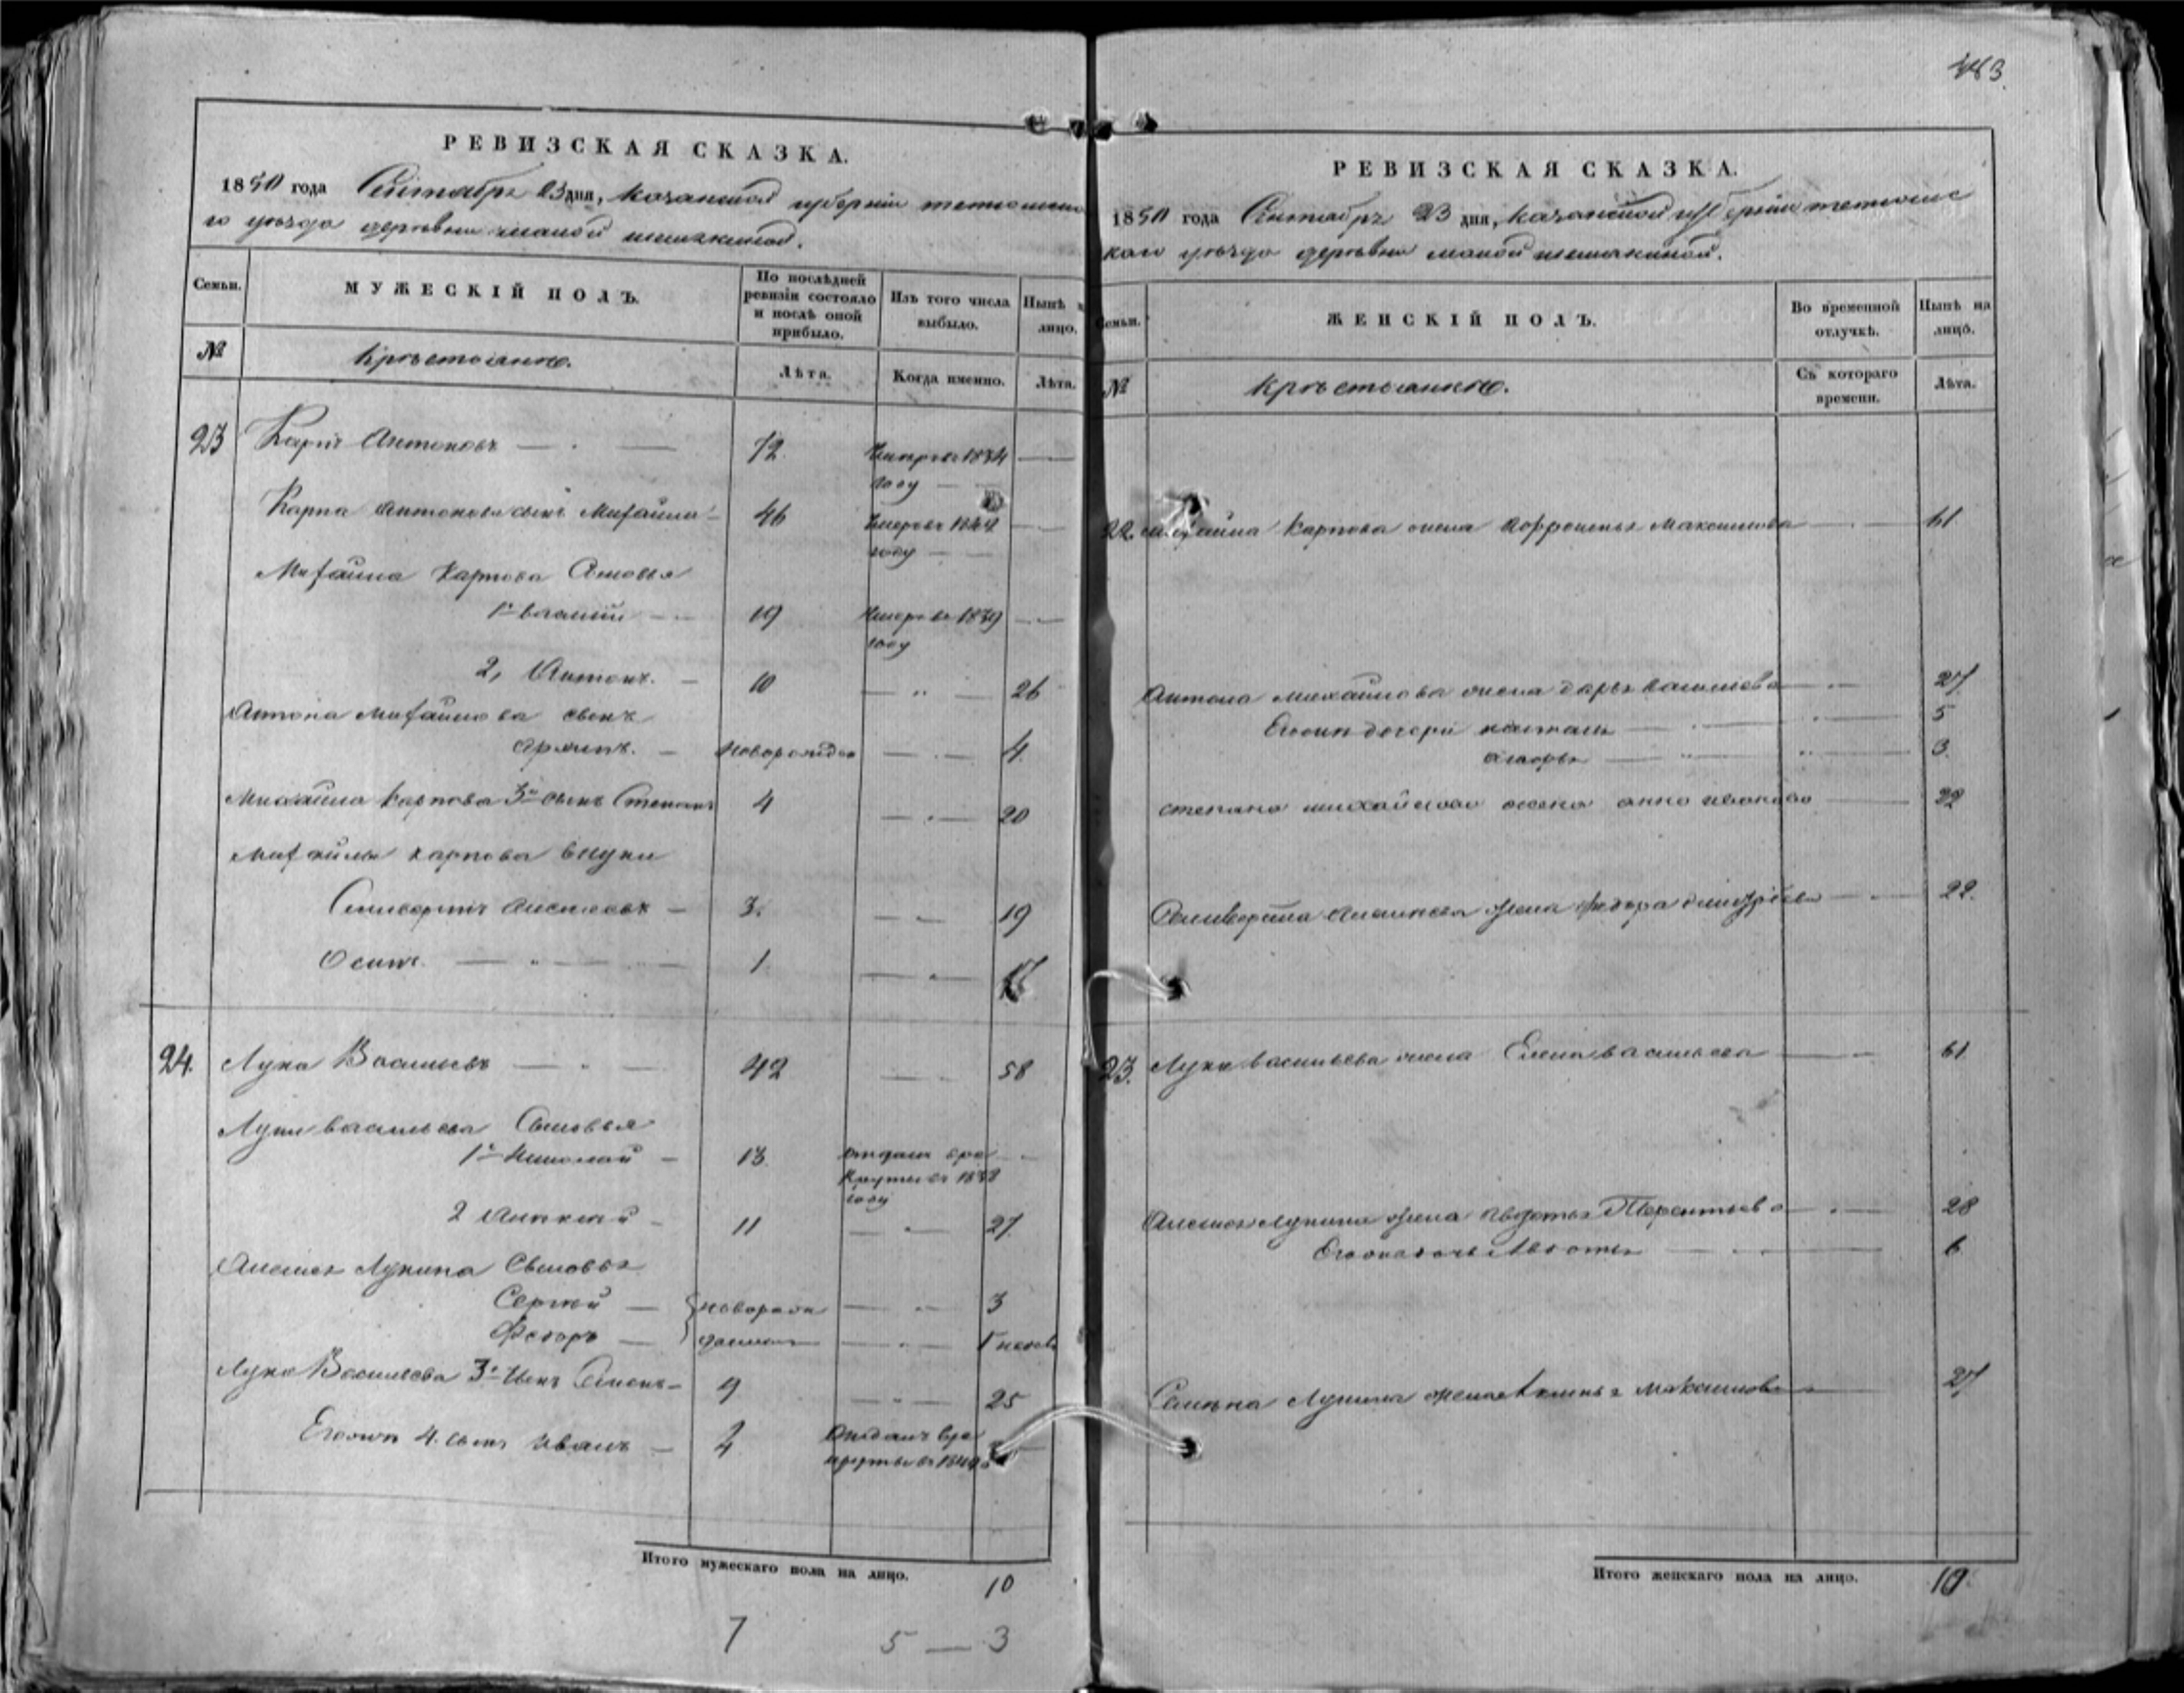 РЕВИЗСКАЯ СКАЗКА.
1850 года Сентября 23 дня, Казанской губернии тетюшска
го уѣзда деревни малой шемякиной.
Семьи. МУЖЕСКІЙ ПОЛЪ. По послѣдней ревизіи состояло и послѣ оной прибыло. Изъ того числа выбыло. Нынѣ на лицо.
№ Лѣта. Когда именно. Лѣта.
23 Карпъ Антоновъ 72 1834
году
Карпа Антонова сынъ Михайла 46
году
Михайла Карпова Сыновья
1й 19 1839
году
2, Антонъ. 10 26
Антона Михайлова сынъ
Архипъ. Новорожден 4
Михайла Карпова 3й сынъ Степанъ 4 20
Михайлы Карпова внуки
Селиверстъ Алексеевъ 3 19
Осипъ. 1 17
24. Лука Васильевъ 42 58
Луки Васильева Сыновья
1й Николай 13 отданъ в ре
круты въ
году
2 Алексей 11 27
Алексея Лукина Сыновья
Сергей новорож 3
Федоръ денные
Луки Васильева 3й сынъ Семенъ 9 25
Егожъ 4. сынъ Иванъ 4 Отданъ в ре
круты въ
Итого мужескаго пола на лицо. 10
7 5 — 3
483.
РЕВИЗСКАЯ СКАЗКА.
1850 года Сентября 23 дня, Казанской губерніи тетюшс
каго уѣзда деревни малой шемякиной.
Семьи. ЖЕНСКІЙ ПОЛЪ. Во временной отлучкѣ. Нынѣ на лицо.
№ Съ котораго времени. Лѣта.
22. Михайла Карпова жена Максимова 61
Антона михайлова жена дарья васильева 27
Егожъ дочери 5
3
степана михайлова жена анна иванова 22
Селиверста Алексеева жена 22.
23. Луки васильева жена Елена васильева 61
Алексея Лукина жена Авдотья Терентьева 28
6
Семена Лукина жена Максимова 27
Итого женскаго пола на лицо. 10